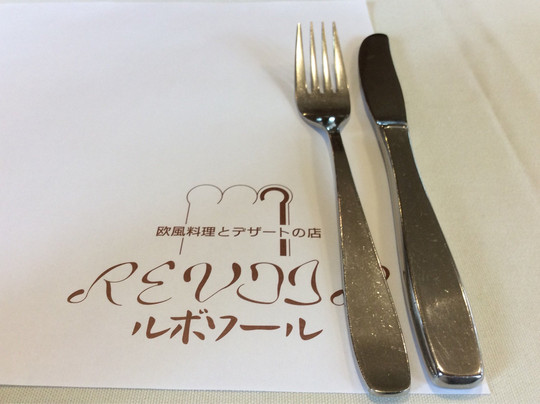 欧風料理とデザートの店
REVOIR
ルボワール